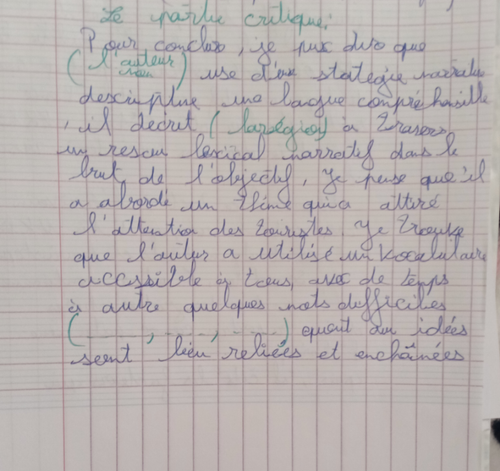 Le partie critique:
Pour conclure, je peux dire que
(l'auteur nom) use d'une stratégie narrative
une langue compréhensible
, il décrit (la région) à travers
un reseau lexical narratif dans le
but de l'objectif, je pense que il
a abordé un thème qui a attiré
l'attention des touristes. Je trouve
que l'auteur a utilisé un vocabulaire
accessible à tous, avec de temps
à autre quelques mots difficiles
(......, ......, ......) quoit au idées
sont bien reliées et enchaînées